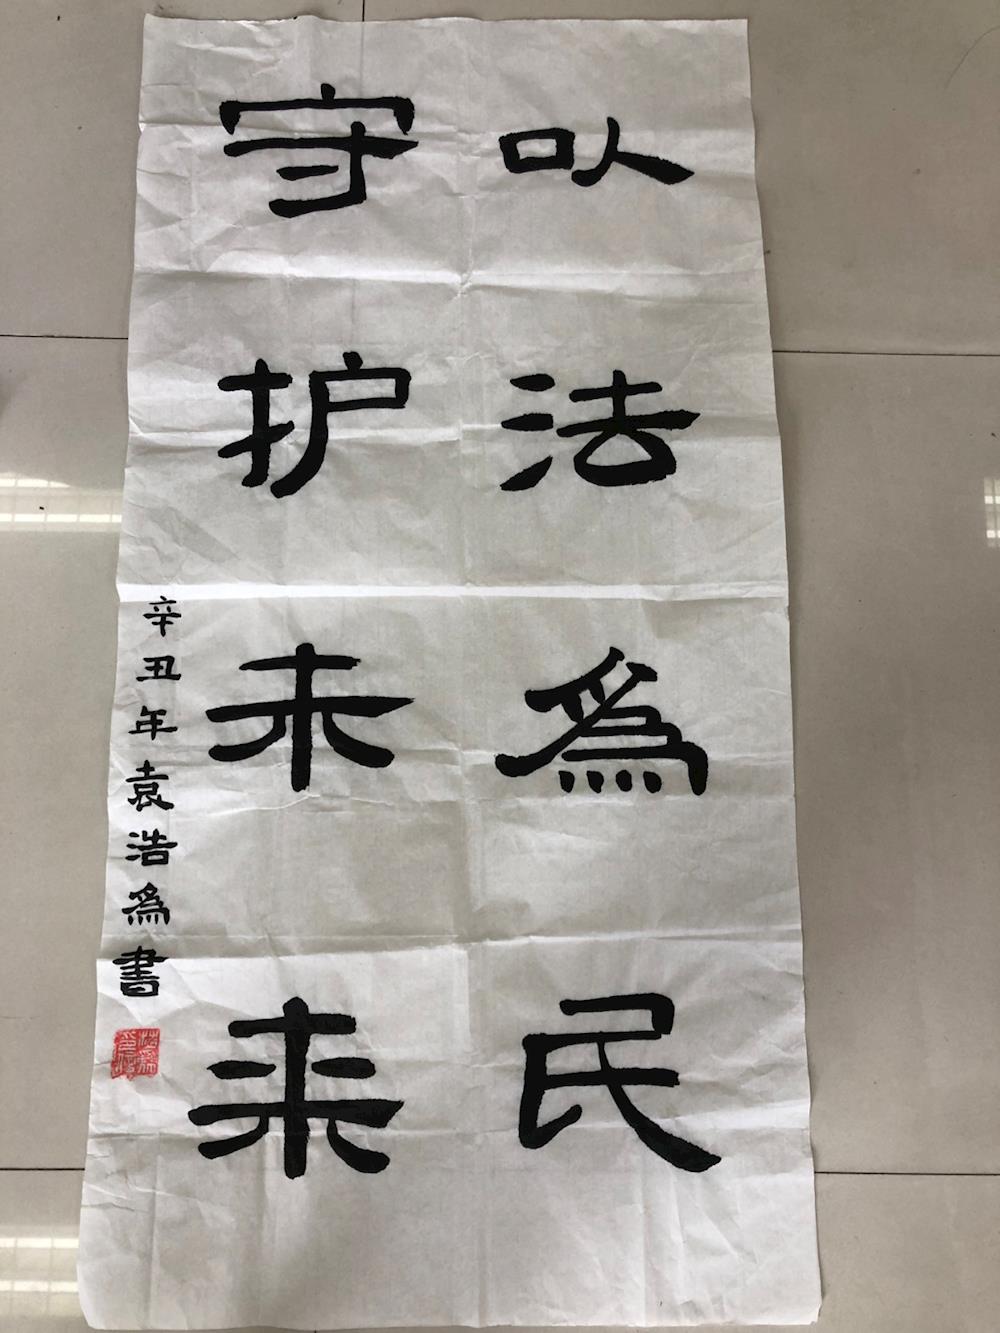 以法為民
守护未来
辛丑年袁浩為書